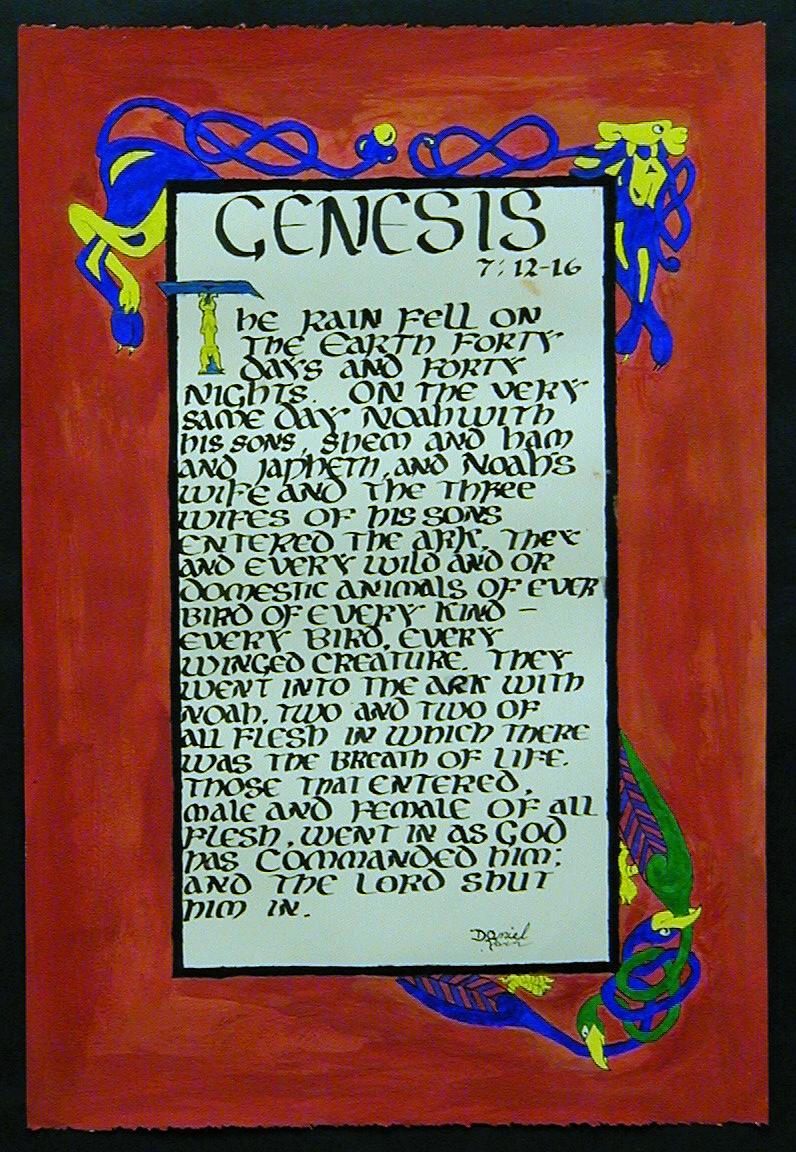 GENESIS
7:12-16
The RAIN FELL ON
THE EARTH FORTY
DAYS AND FORTY
NIGHTS. ON THE VERY
SAME DAY NOAH WITH
HIS SONS, SHEM AND HAM
AND JAPHETH, AND NOAH'S
WIFE AND THE THREE
WIFES OF HIS SONS
ENTERED THE ARK. THEY
AND EVERY WILD AND OR
DOMESTIC ANIMALS OF EVER
BIRD OF EVERY KIND –
EVERY BIRD, EVERY
WINGED CREATURE. THEY
WENT INTO THE ARK WITH
NOAH, TWO AND TWO OF
ALL FLESH IN WHICH THERE
WAS THE BREATH OF LIFE.
THOSE THAT ENTERED,
MALE AND FEMALE OF ALL
FLESH, WENT IN AS GOD
HAS COMMANDED HIM:
AND THE LORD SHUT
HIM IN.
Daniel